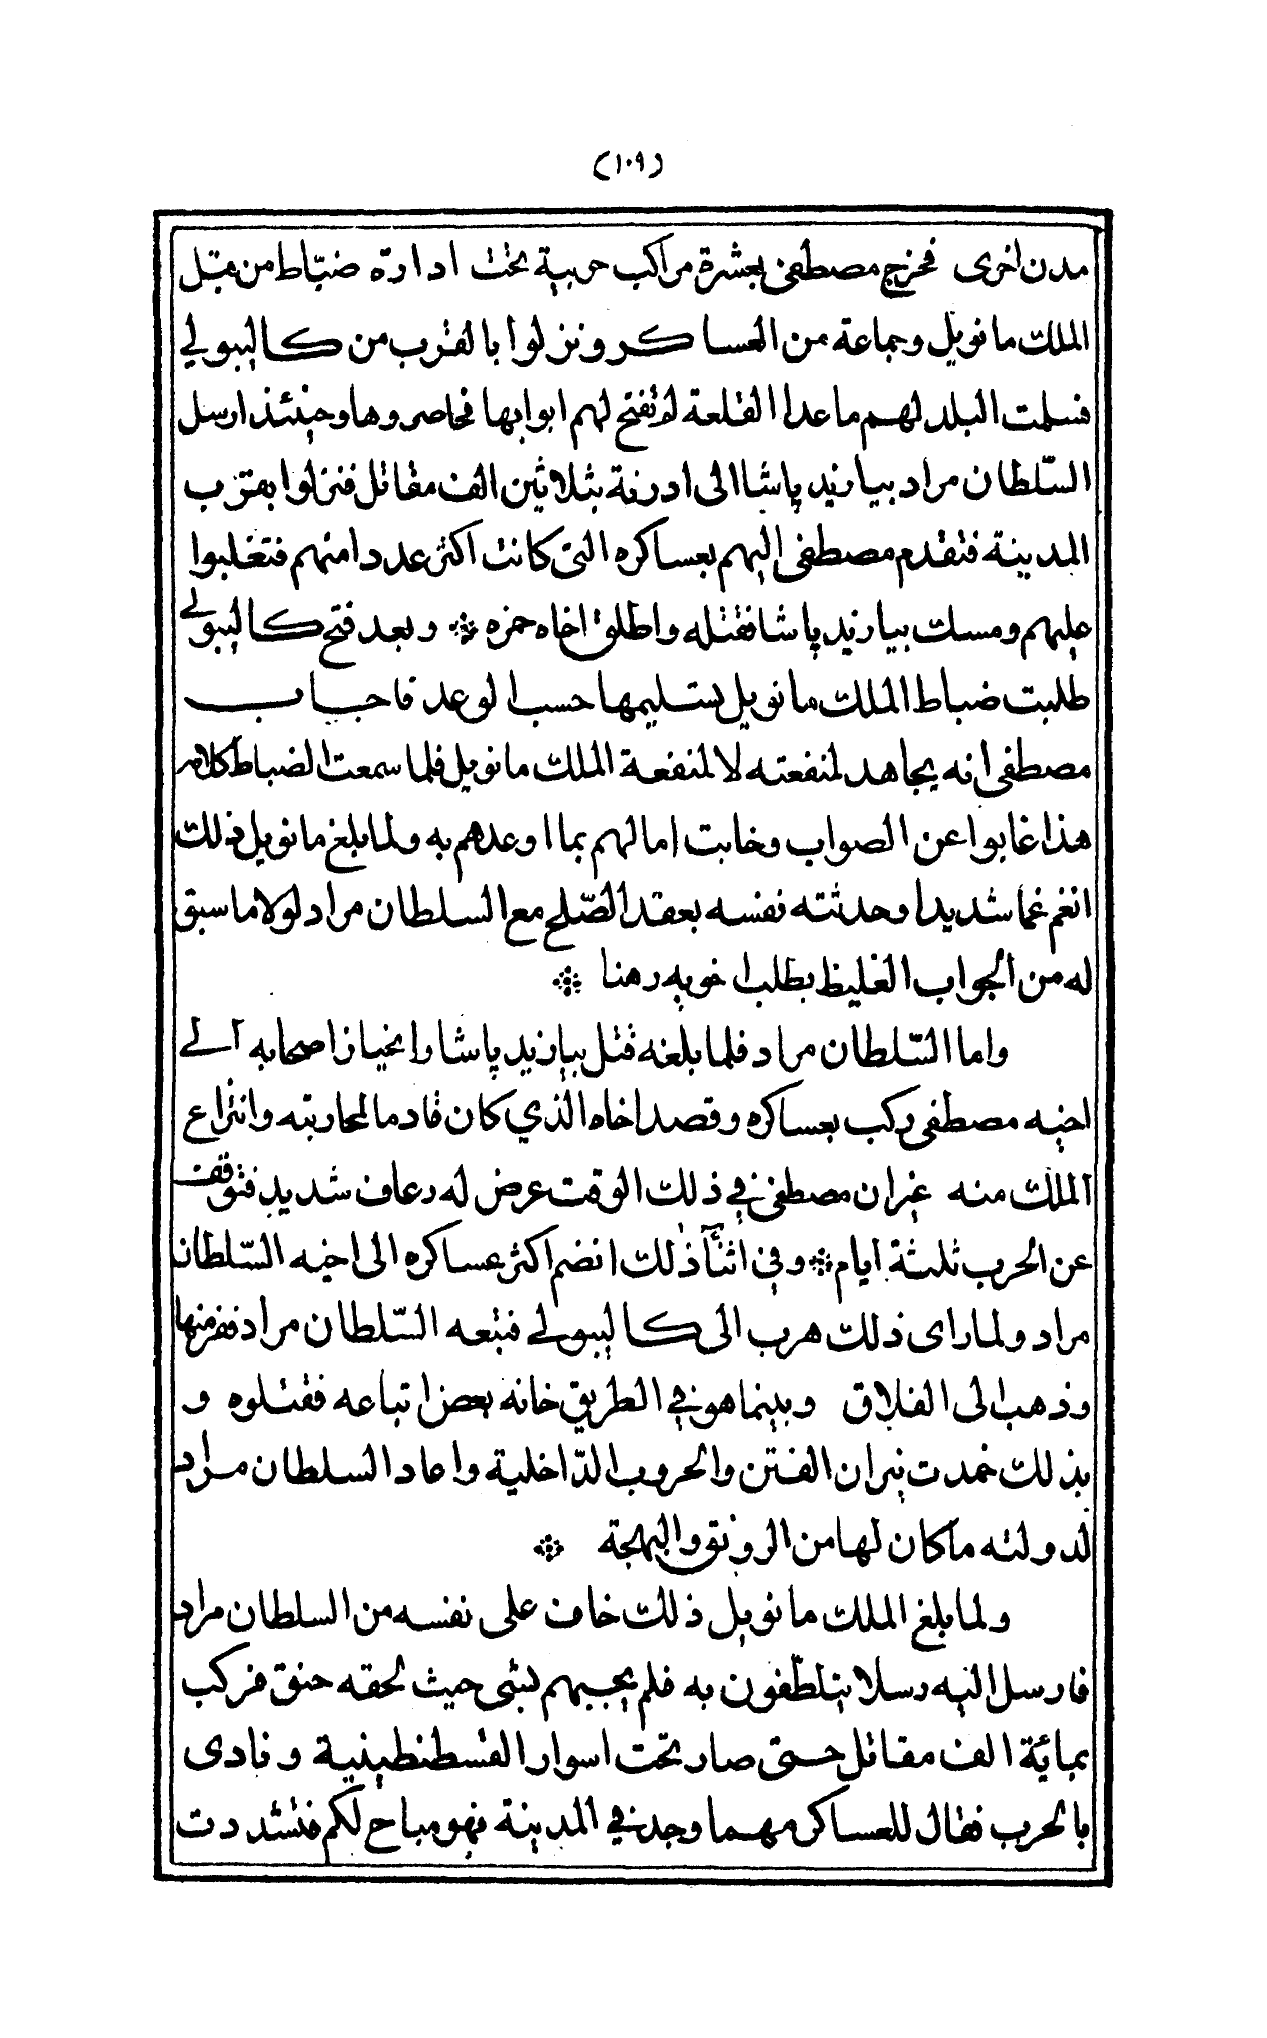 (١٠٩)
مدن اخرى فخرج مصطفى بعشرة مراكب حربية تحت ادارة ضبّاط من قبل
الملك مانويل وجماعة من العساكر ونزلوا بالقرب من كاليبولي
فسلمت البلد لهم ماعدا القلعة لم تفتح لهم ابوابها فحاصروها وحينئذ ارسل
السّلطان مراد بيازيد پاشا الى ادرنة بثلاثين الف مقاتل فنزلوا بقرب
المدينة فتقدم مصطفى اليهم بعساكره التي كانت اكثر عددا منهم فتغلبوا
عليهم ومسك بيازيد پاشا فقتله واطلق اخاه حمزه ※ وبعد فتح كاليبولي
طلبت ضباط الملك مانويل تسليمها حسب الوعد فاجاب
مصطفى انه يجاهد لمنفعته لا لمنفعة الملك مانويل فلما سمعت الضباط كلام
هذا غابوا عن الصواب وخابت امالهم بما اوعدهم به ولما بلغ مانويل ذلك
انغم غما شديدا وحدثته نفسه بعقد الصّلح مع السلطان مراد لولا ما سبق
له من الجواب الغليظ بطلب اخويه رهنا ※
واما السّلطان مراد فلما بلغه قتل بيازيد پاشا وانحياز اصحابه الى
اخيه مصطفى ركب بعساكره وقصد اخاه الذي كان قادما لمحاربته وانتزاع
الملك منه غير ان مصطفى في ذلك الوقت عرض له رعاف شديد فتوقف
عن الحرب ثلثة ايام ※ وفي اثنآء ذلك انضم اكثر عساكره الى اخيه السّلطان
مراد ولما راى ذلك هرب الى كاليبولي فتبعه السّلطان مراد ففر منها
وذهب الى الفلاق وبينما هو في الطريق خانه بعض اتباعه فقتلوه و
بذلك خمدت نيران الفتن والحروب الدّاخلية واعاد السلطان مراد
لدولته ماكان لها من الرونق والبهجة ※
ولما بلغ الملك مانويل ذلك خاف على نفسه من السلطان مراد
فارسل اليه رسلا يتلطّفون به فلم يجبهم بشي حيث لحقه حنق فركب
بماية الف مقاتل حتى صار تحت اسوار القسطنطينية ونادى
بالحرب فقال للعساكر مهما وجد في المدينة فهو مباح لكم فتشددت